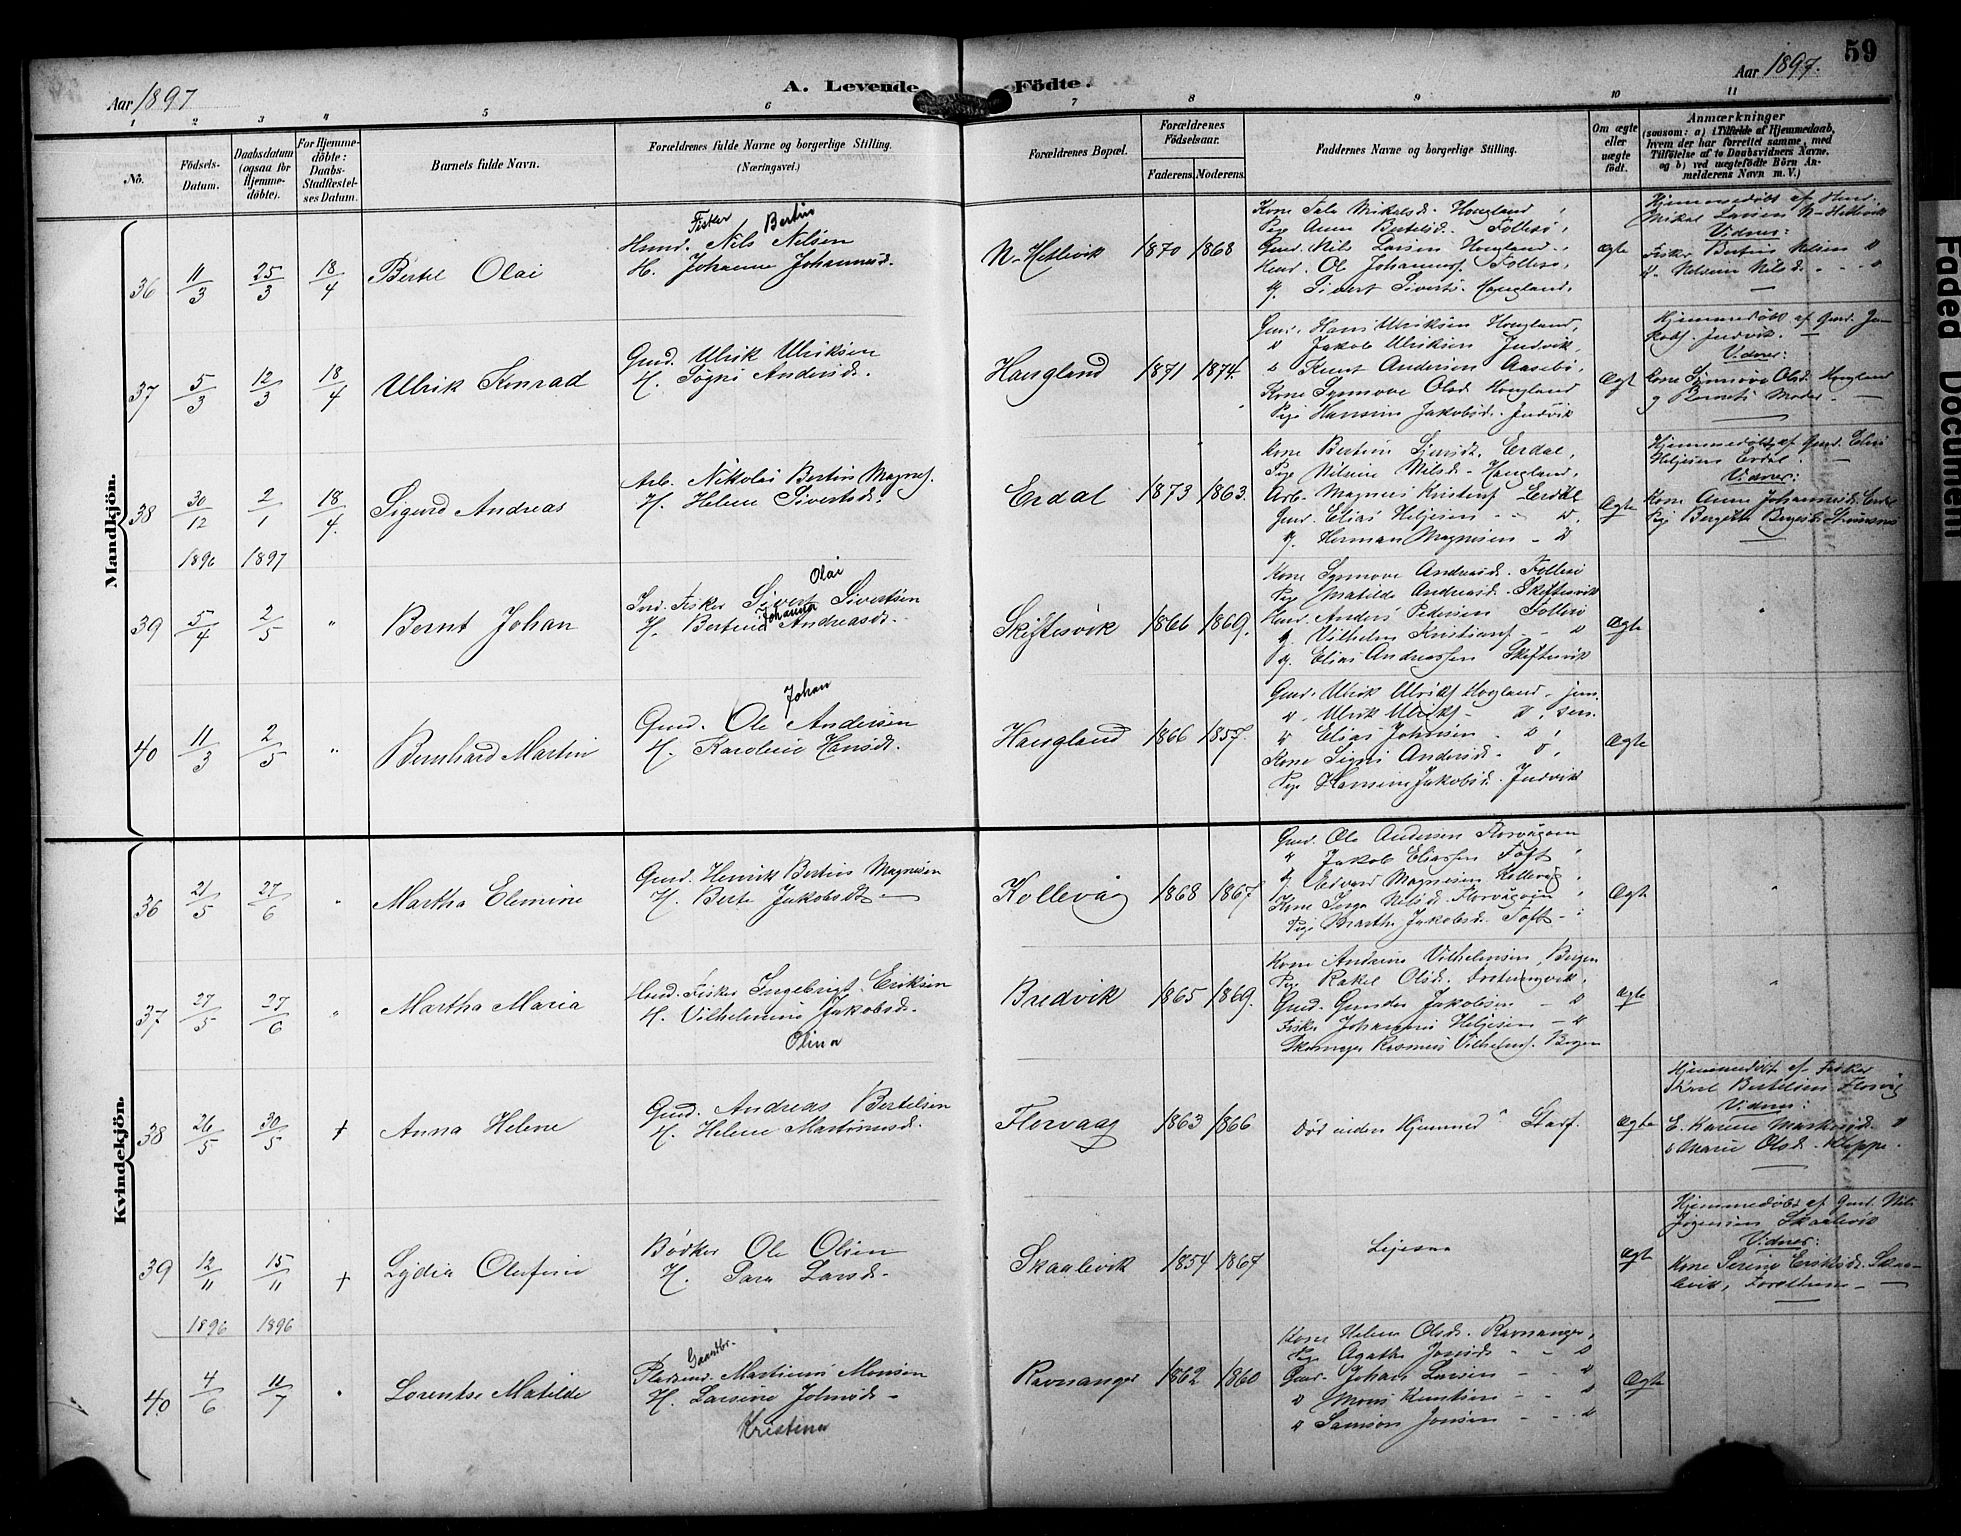 59
Aar 1897
A. Levende Födte.
Aar 1897.
1 2 3 4 5 6 7 8 9 10 11
No.
Födsels-Datum.
Daabsdatum (ogsaa for Hjemmedöbte).
For Hjemmedöbte: Daabs-Stadfæstelses Datum.
Barnets fulde Navn.
Forældrenes fulde Navne og borgerlige Stilling.
(Næringsvei.)
Forældrenes Bopæl.
Forældrenes Födselsaar.
Faderens. Moderens.
Faddernes Navne og borgerlige Stilling.
Om ægte eller uægte födt.
Anmærkninger
(saasom: a) i Tilfælde af Hjemmedaab, hvem der har forrettet samme, med Tilföielse af to Daabsvidners Navne, og b) ved uægtefödte Börn Anmelderens Navn m. V.)
Mandkjön.
36 11/3 25/3 18/4 Bertel Olai
Fisker Bertin
Nils Nilsen
H. Johanne Johannesd.
N-Hetlevik 1870 1868
Pige Anne Bertelsd. Follesö,
Gmd. Nils Larsen Hougland
Ole Johannesf. Follesö,
Sivert Siverts. Hougland,
ægte
Hjemmedöbt af
Mikal Larsen N-Hetlevik
Vidner:
Fisker Bertin Nilsen
37 5/3 12/3 18/4 Ulrik Konrad
Gmd. Ulrik Ulriksen
H. Signi Andersd.
Haugland 1871 1874.
Gmd. Hans Ulriksen Hougland,
" Jakob Ulriksen Indvik,
" Knut Andersen Aasebö,
Kone Synnove Olsd. Hougland
Pige Hansine Jakobsd. Indvik
Ægte
Hjemmedöbt af Gmd.
Indvik.
Vidner:
Kone Synnöve Olsd. Hougland
og Barnets Moder
38 30/12 2/1 18/4 Sigurd Andreas
1896 1897
Arb. Nikolai Bertin Magnesf.
H. Helene Sivertsd.
Erdal 1873 1863.
Kone Bertine Erdal,
Pige Nilsine Nilsd. Hougland,
Arb. Magnus Kristensf. Erdal
Gmd. Elias Heljesen
Herman Magnesen
Ægte
Hjemmedöbt af Gmd. Elias
Heljesen Erdal.
Vidner:
Kone Anne Johannesd. Erdal
Pige Bergitte
39 5/4 2/5 " Bernt Johan
Olai
Fisker Sivert Sivertsen
Johanna
H. Bertine Andreasd.
Skiftesvik 1866 1869.
Kone Synnove Andreasd. Follesö
Pige Matilde Andreasd. Skiftesvik
Anders Pedersen Follesö
Vilhelm Kristiansf.
Elias Andreassen Skiftesvik
Ægte
40 11/3 2/5 " Bernhard Martin
Johan
Gmd. Ole Andersen
H. Karoline Hansd.
Haugland 1866 1857.
Gmd. Ulrik Ulriksf. Hougland jun.
" Ulrik Ulriksf. " sen.
" Elias Johnsen
Kone Signi Andersd.
Pige Hansine Jakobsd. Indvik
Ægte
Kvindekjön.
36 21/5 27/6 " Martha Elemine
Gmd. Henrik Bertin Magnesen
H. Berte Jakobsd.
Kollevåg 1868 1867
Gmd. Ole Andersen Florvågøen
" Jakob Eliassen Toft
Edvard Magnesen Kollevåg
Kone Inga Nilsd. Florvågøen
Pige Marthe Jakobsd. Toft
Ægte
37 27/5 27/6 " Martha Maria
Fisker Ingebrigt Eriksen
H. Vilhelmine Jakobsd.
Olina
Bredvik 1865 1869.
Kone Andrine Vilhelmsen, Bergen
Pige Rakel Olsd.
Gmd. Gunder Jakobsen
Fisker Johannes Heljesen
Skomager Rasmus Vilhelmsf. Bergen
ægte
38 26/5 30/5 † Anna Helene
Gmd. Andreas Bertelsen
H. Helene Martinusd.
Florvaag 1863 1866
Död uden Hjemmed. Stadf.
Ægte
Hjemmedöbt af Fisker
Karl Bertelsen Florvåg
Vidner:
E. Karine Markusd.
" Marie Olsd. Kleppe.
39 12/11 15/11 † Lydia Olufine
1896 1896
Bödker Ole Olsen
H. Sara Larsd.
Skaalevik 1854 1867
Ligesaa
ægte
Hjemmedöbt af Gmd. Nils
Jörgensen Skaalevik
Vidner:
Kone Serine Eriksd. Skaalevik, Forældrene
40 4/6 11/7 " Lorentse Matilde
Gaardbr.
Pladsmd. Martinus Monsen
H. Larsine Johnsd.
Kristina
Ravnanger 1862 1860
Kone Helene Olsd. Ravnanger,
Pige Agathe Jonsd.
Gmd. Johan Larsen
" Mons Knutsen
" Samson Jonsen
Ægte
Faded Document